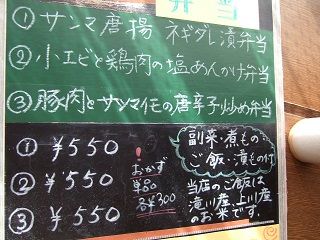 弁当
①サンマ唐揚 ネギダレ漬弁当
②小エビと鶏肉の塩あんかけ弁当
③豚肉とサツマイモの唐辛子炒め弁当
① ¥550
② ¥550
③ ¥550
！おかず
単品
各¥300
副菜・煮もの・
ご飯・漬もの付
当店のご飯は
滝川産、上川産
のお米です。